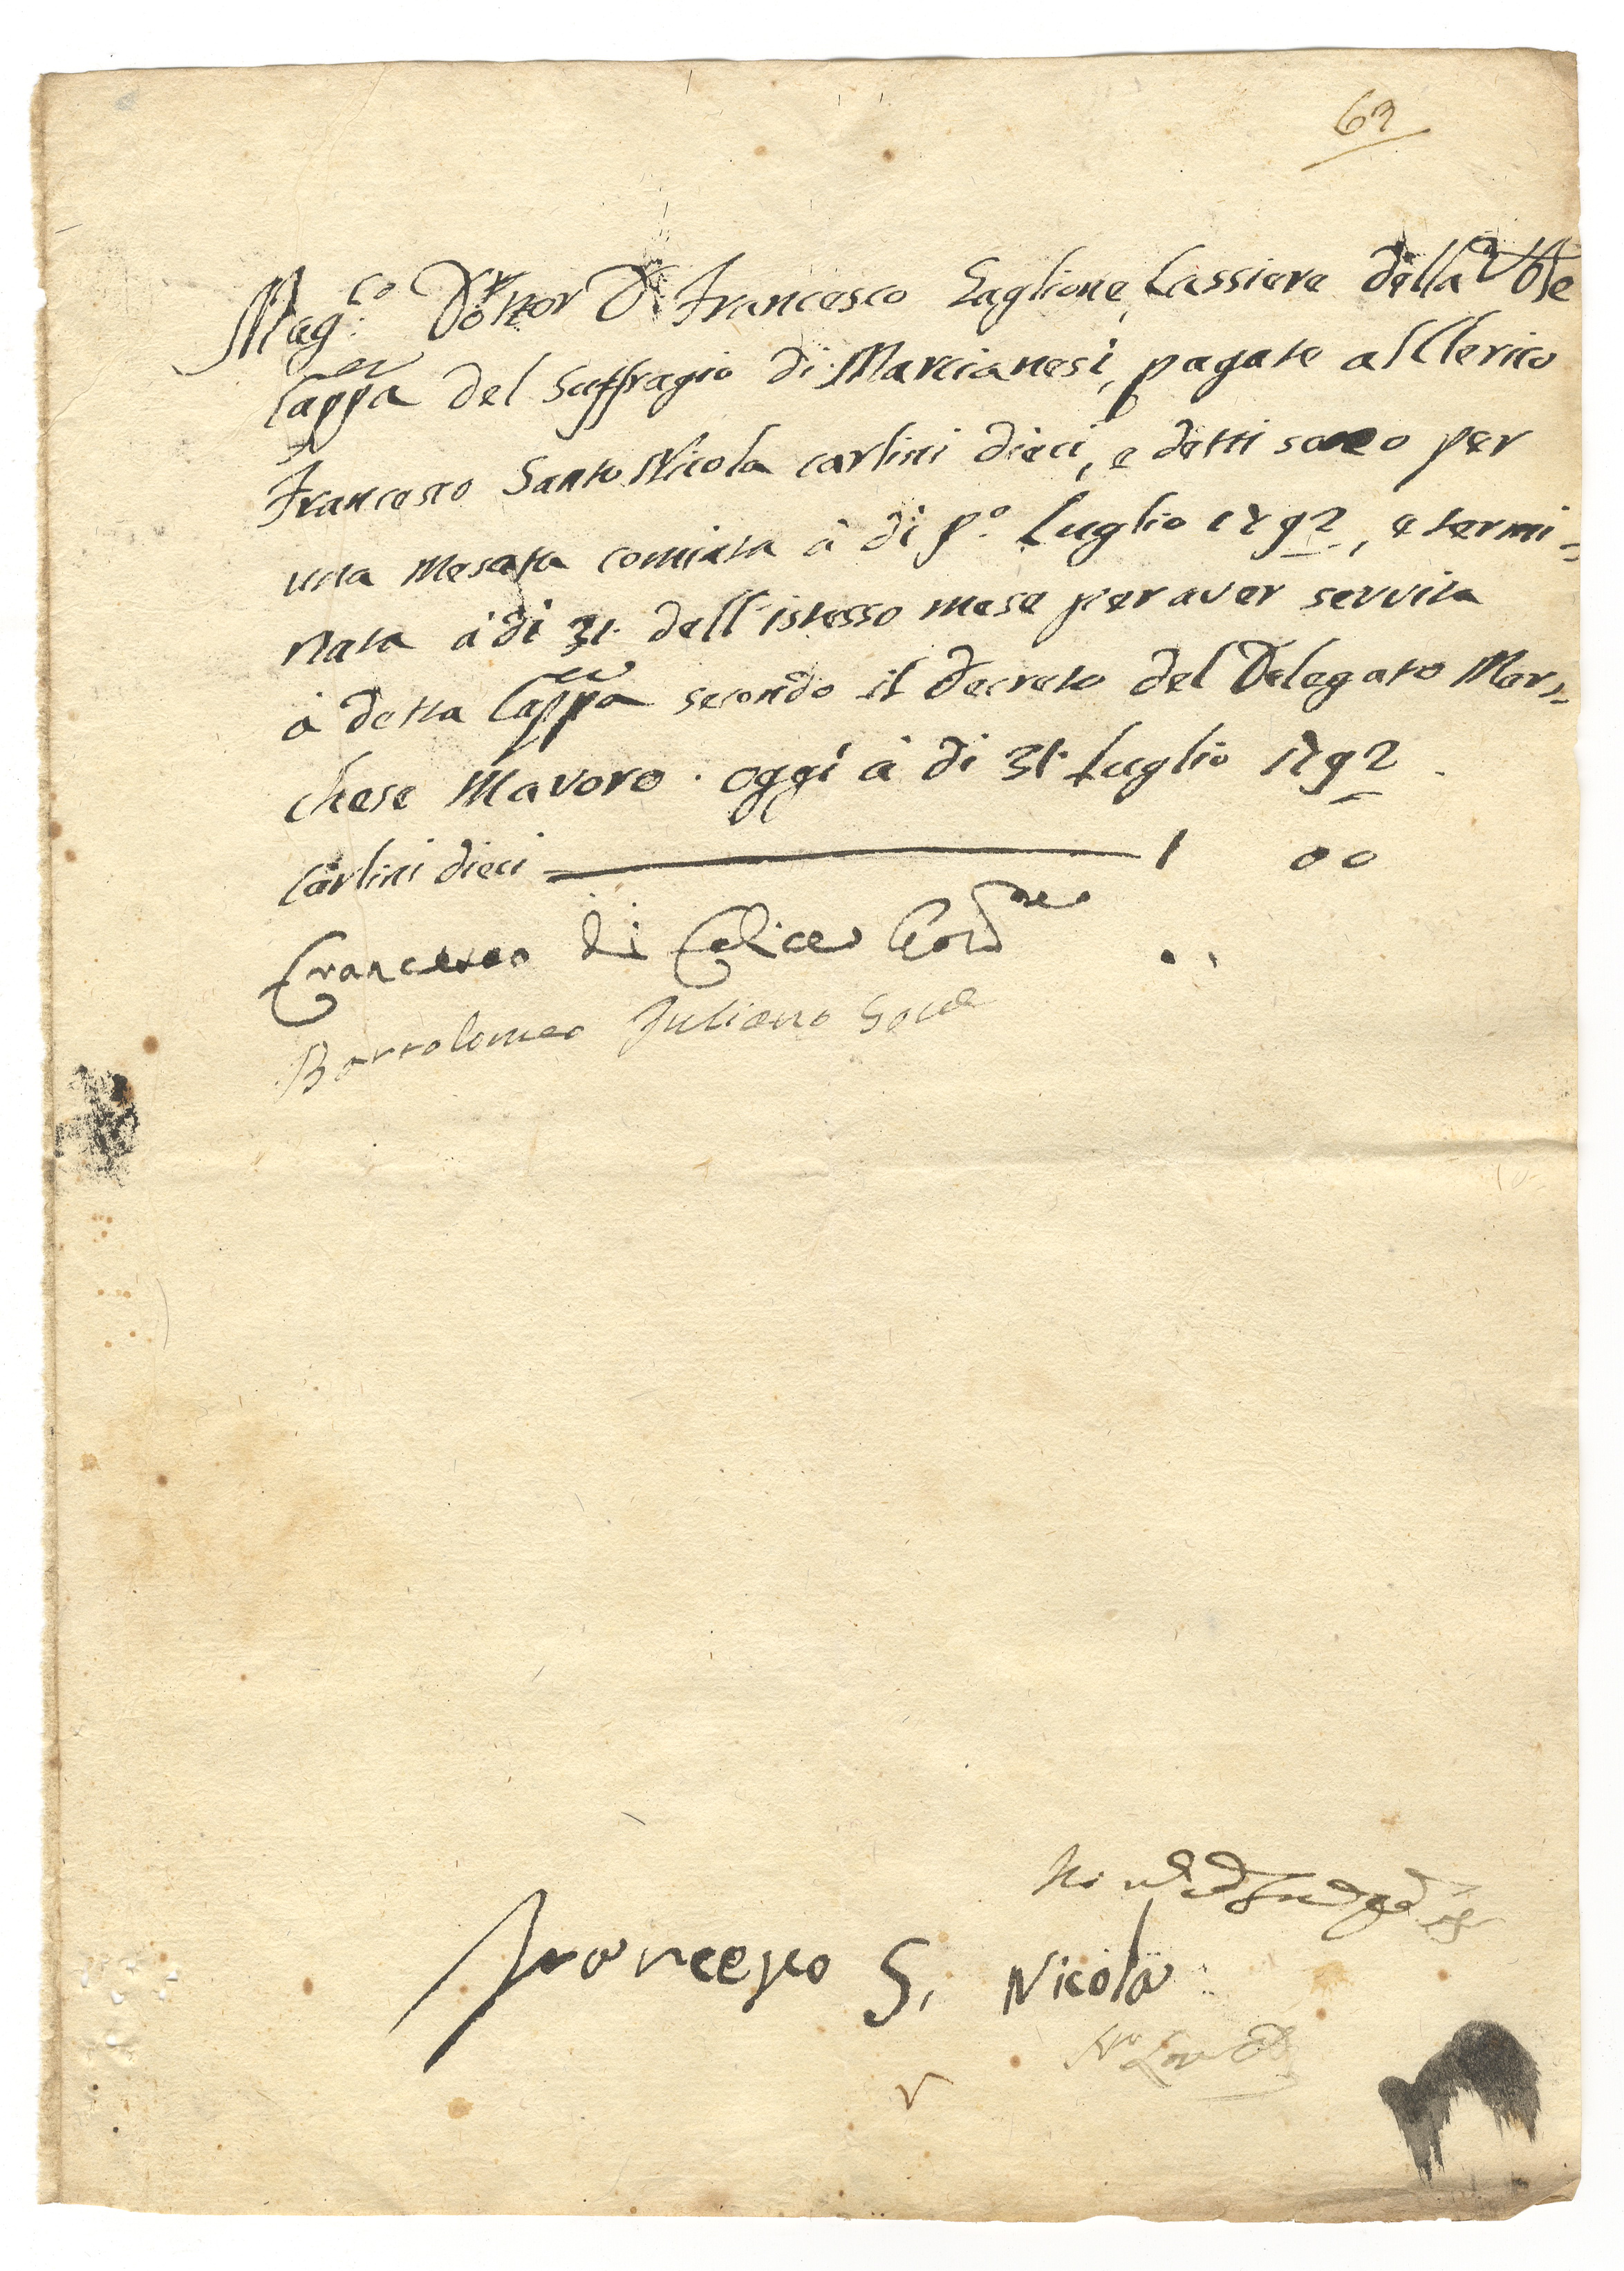 63
Mag.co Dottor D. Francesco Gaglione, Cassiere della Ve
Cappa del Suffragio di Marcianesi, pagate al Clerico
Francesco Santo Nicola carlini dieci, e detti sono per
una mesata comin.ta à dì p.o Luglio 1792, e termi=
nata à dì 31. dell'istesso mese per aver servita
à detta Cappa secondo il decreto del Delegato Mar=
chese Mavoro. oggi à dì 31. Luglio 1792
Carlini dieci 1 00
Francesco di Felice
Bartolomeo Juliano
Francesco S. Nicola